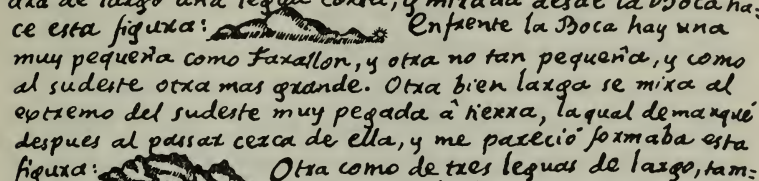 dra de largo una legua corta, y mirada desde la Boca ha=
ce esta figura: Enfrente la Boca hay una
muy pequeña como Farallon, y otra no tan pequeña, y como
al sudeste otra mas grande. Otra bien larga se mira al
extremo del sudeste muy pegada â tierra, la qual demarqué
despues al passar cerca de ella, y me pareció formaba esta
figura: Otra como de tres leguas de largo, tam=